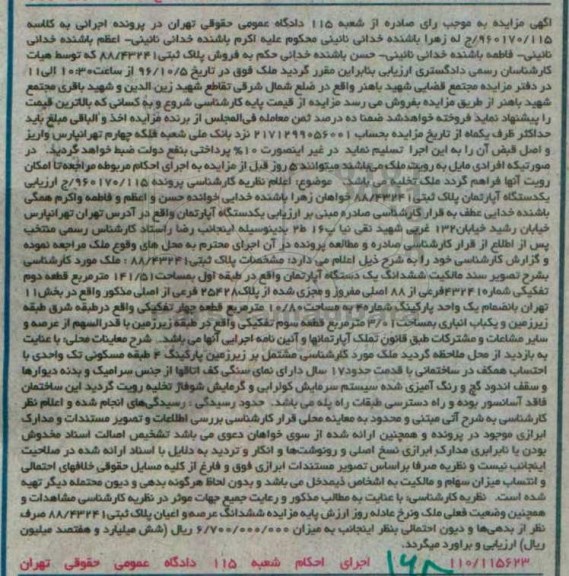 آگهی مزایده به موجب رای صادره از شعبه ۱۱۵ دادگاه عمومی حقوقی تهران در پرونده اجرائی به کلاسه
۹۶۰۱۷۰/۱۱۵/ج له زهرا باشنده خدائی نائینی محکوم علیه اکرم باشنده خدائی نائینی- اعظم باشنده خدائی
نائینی- فاطمه باشنده خدائی نائینی- حسن باشنده خدائی حکم به فروش پلاک ثبتی۸۸/۴۳۲۴۱ که توسط هیات
کارشناسان رسمی دادگستری ارزیابی بنابراین مقرر گردید ملک فوق در تاریخ ۹۶/۱۰/۵ از ساعت۱۰:۳۰ الی۱۱
در دفتر مزایده مجتمع قضایی شهید باهنر واقع در ضلع شمال شرقی تقاطع شهید زین الدین و شهید باقری مجتمع
شهید باهنر از طریق مزایده بفروش می رسد مزایده از قیمت پایه کارشناسی شروع و به کسانی که بالاترین قیمت
را پیشنهاد نماید فروخته خواهدشد ضمنا ده درصد ثمن معامله فی‌المجلس از برنده مزایده اخذ و الباقی مبلغ باید
حداکثر ظرف یکماه از تاریخ مزایده بحساب ۲۱۷۱۲۹۹۰۵۶۰۰۱ نزد بانک ملی شعبه فلکه چهارم تهرانپارس واریز
و اصل قبض آن را به این اجرا تسلیم نماید در غیر اینصورت ۱۰% پرداختی بنفع دولت ضبط خواهد گردید. در
صورتیکه افرادی مایل به رویت ملک می‌باشند میتوانند ۵ روز قبل از مزایده به اجرای احکام مربوطه مراجعه تا امکان
رویت آنها فراهم گردد ملک تخلیه می باشد موضوع: اعلام نظریه کارشناسی پرونده ۹۶۰۱۷۰/۱۱۵/ج ارزیابی
یکدستگاه آپارتمان پلاک ثبتی۸۸/۴۳۲۴۱ خواهان زهرا باشنده خدایی خوانده حسن و اعظم و فاطمه واکرم همگی
باشنده خدایی عطف به قرار کارشناسی صادره مبنی بر ارزیابی یکدستگاه آپارتمان واقع در آدرس تهران تهرانپارس
خیابان رشید خیابان۱۳۲ غربی شهید نقی نیا پ۱۶ ط۲ بدینوسیله اینجانب رضا راستاد کارشناس رسمی منتخب
پس از اطلاع از قرار کارشناسی صادره و مطالعه پرونده در آن اجرای محترم به محل های وقوع ملک مراجعه نموده
و گزارش کارشناسی خود را به شرح ذیل اعلام می دارد: مشخصات پلاک ثبتی۸۸/۴۳۲۴۱ : ملک مورد کارشناسی
بشرح تصویر سند مالکیت ششدانگ یک دستگاه آپارتمان واقع در طبقه اول بمساحت۱۴۱/۵۱ مترمربع قطعه دوم
تفکیکی شماره۴۳۲۴۱فرعی از ۸۸ اصلی مفروز و مجزی شده از پلاک۲۵۴۲۸ فرعی از اصلی مذکور واقع در بخش۱۱
تهران بانضمام یک واحد پارکینگ شماره۴ بمساحت ۱۰/۸ مترمربع قطعه چهار تفکیکی واقع درطبقه شرق طبقه
زیرزمین و یکباب انباری بمساحت۳/۰۱ مترمربع قطعه سوم تفکیکی واقع در طبقه زیرزمین با قدرالسهم از عرصه و
سایر مشاعات و مشترکات طبق قانون تملک آپارتمانها و آئین نامه اجرایی آنها می باشد. شرح معاینات محلی: با عنایت
به بازدید از محل ملاحظه گردید ملک مورد کارشناسی مشتمل بر زیرزمین پارکینگ ۴ طبقه مسکونی تک واحدی با
احتساب همکف در ساختمانی با قدمت حدود۱۷ سال دارای نمای سنگی کف اتاقها از جنس سرامیک و بدنه دیوارها
و سقف اندود گچ و رنگ آمیزی شده سیستم سرمایش کولرآبی و گرمایش شوفاژ تخلیه رویت گردید این ساختمان
فاقد آسانسور بوده و راه دسترسی طبقات راه پله می باشد. حدود رسیدگی: رسیدگی‌های انجام شده و اعلام نظر
کارشناسی به شرح آتی مبتنی و محدود به معاینه محلی قرار کارشناسی بررسی اطلاعات و تصویر مستندات و مدارک
ابرازی موجود در پرونده و همچنین ارائه شده از سوی خواهان دعوی می باشد تشخیص اصالت اسناد مخدوش
بودن یا نابرابری مدارک ابرازی نسخ اصلی و رونوشت‌ها و انکار و تردید به دلایل با اسناد ارائه شده در صلاحیت
اینجانب نیست و نظریه صرفا براساس تصویر مستندات ابرازی فوق و فارغ از کلیه مسایل حقوقی خلافهای احتمالی
و انتساب میزان سهام و مالکیت به اشخاص ذیمدخل می باشد و بدون لحاظ هرگونه بدهی و دیون محتمله دیگر تهیه
شده است. نظریه کارشناسی: با عنایت به مطالب مذکور و رعایت جمیع جهات موثر در نظریه کارشناسی مشاهدات و
همچنین وضعیت فعلی ملک ونرخ عادله روز ارزش پایه مزایده ششدانگ عرصه و اعیان پلاک ثبتی۸۸/۴۳۲۴۱ صرف
نظر از بدهی‌ها و دیون احتمالی بنظر اینجانب به میزان ۶/۷۰۰/۰۰۰/۰۰۰ ریال (شش میلیارد و هفتصد میلیون
ریال) ارزیابی و براورد میگردد.
۱۱۰/۱۱۵۶۲۳ اجرای احکام شعبه ۱۱۵ دادگاه عمومی حقوقی تهران